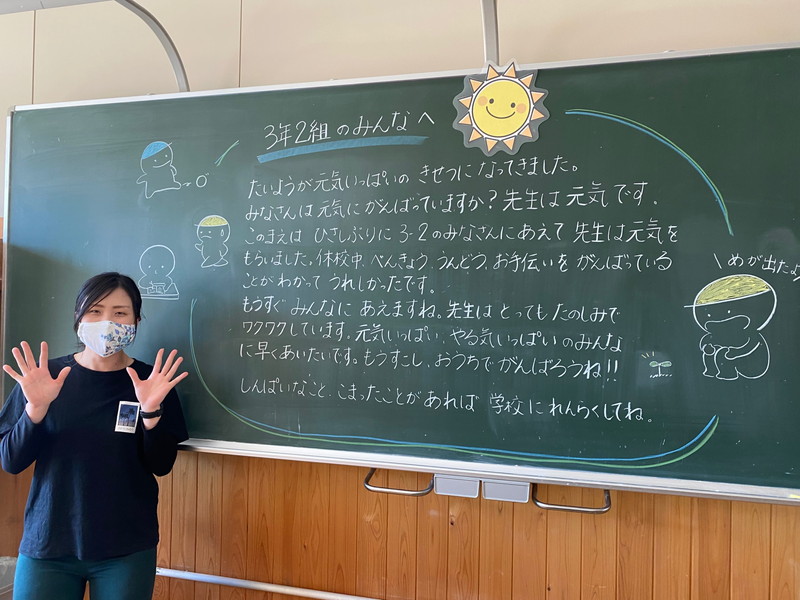 3年2組のみんなへ
たいようが元気いっぱいの きせつになってきました。
みなさんは元気にがんばっていますか？先生は元気です。
このまえは ひさしぶりに 3-2のみなさんにあえて 先生は元気を
もらいました。休校中、べんきょう、うんどう、お手伝いを がんばっている
ことが わかって うれしかったです。
もうすぐ みんなに あえますね。先生は とっても たのしみで
ワクワクしています。元気いっぱい、やる気いっぱい のみんな
に早くあいたいです。もうすこし、おうちで がんばろうね!!
しんぱいなこと、こまったことが あれば 学校に れんらくしてね。
\ めが出たよ